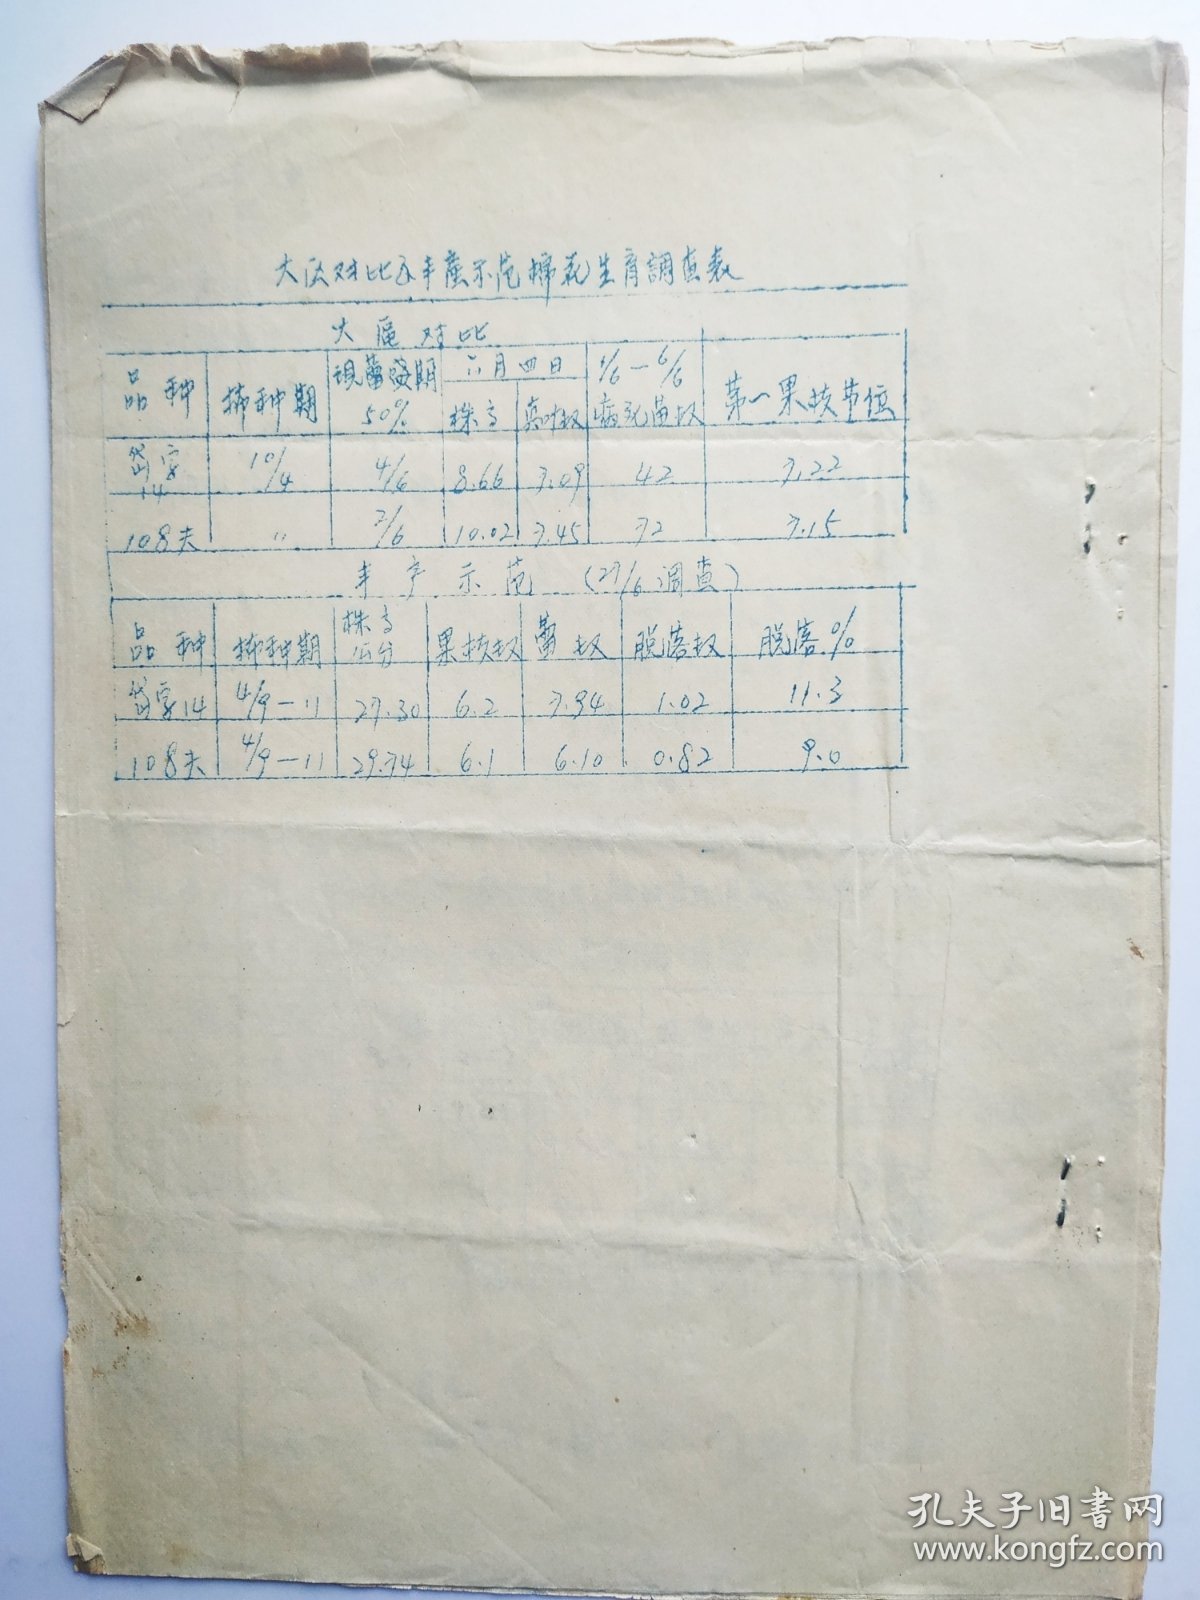 大区对比及丰產示范棉花生育調查表
大區对比
品种 播种期 現蕾盛期50% 六月四日 株高 真叶数 1/6—6/6 病死苗数 第一果枝节位
岱字14 10/4 4/6 8.66 3.09 42 3.22
108夫 〃 3/6 10.02 3.45 32 3.15
丰产示范(27/6调查)
品种 播种期 株高公分 果枝数 蕾数 脱落数 脱落%
岱字14 4/9—11 27.30 6.2 7.94 1.02 11.3
108夫 4/9—11 29.74 6.1 6.10 0.82 9.0
孔夫子旧書网
www.kongfz.com